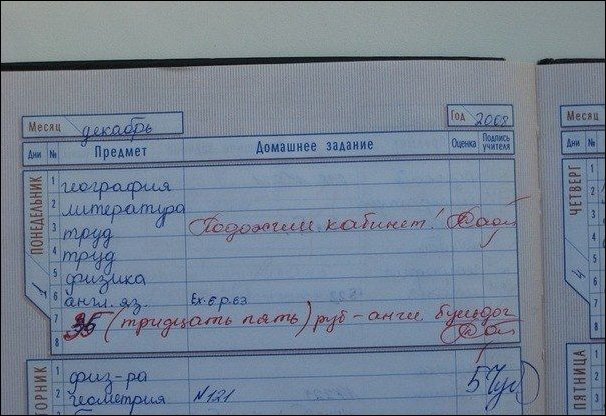 Месяц декабрь Год 2008
Дни № Предмет Домашнее задание Оценка Подпись учителя
ПОНЕДЕЛЬНИК 1
1 география
2 литература
3 труд Подожгли кабинет!
4 труд
5 физика
6 англ. яз. Ex. 6 p. 63
7 35 (тридцать пять) руб - англ. бульдог
8
ВТОРНИК
1 физ-ра
2 геометрия №121 5
Месяц
Дни №
ЧЕТВЕРГ 4
1
2
3
4
5
6
7
8
ПЯТНИЦА
1
2